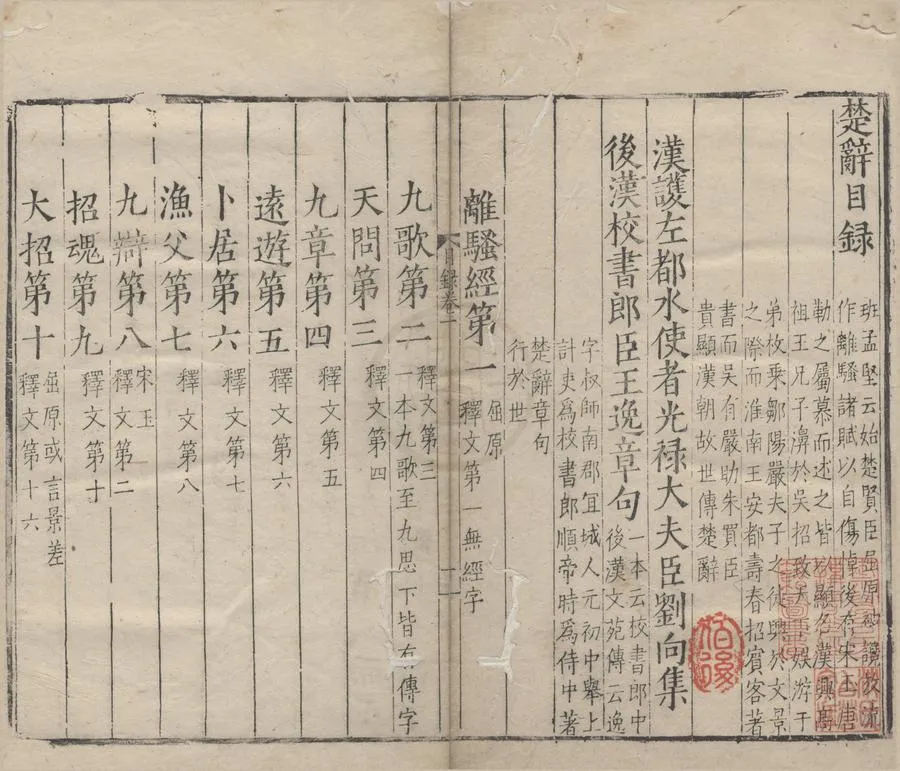 楚辭目録
班孟堅云始楚賢臣屈原被讒放流
作離騷諸賦以自傷悼後有宋玉唐
勒之屬慕而述之皆以顯名漢興高
祖王兄子濞於吳招致天下娛游子
弟枚乘鄒陽嚴夫子之徒興於文景
之際而淮南王安都壽春招賓客著
書而吳有嚴助朱買臣
貴顯漢朝故世傳楚辭
漢護左都水使者光禄大夫臣劉向集
後漢校書郎臣王逸章句
一本云校書郎中
後漢文苑傳云逸
字叔師南郡宜城人元初中舉上
計吏爲校書郎順帝時爲侍中著
楚辭章句
行於世
離騷經第一
屈原
釋文第一無經字
目録卷一
一
九歌第二
釋文第三
一本九歌至九思下皆有傳字
天問第三
釋文第四
九章第四
釋文第五
遠遊第五
釋文第六
卜居第六
釋文第七
漁父第七
釋文第八
九辯第八
宋玉
釋文第二
招魂第九
釋文第十
大招第十
屈原或言景差
釋文第十六